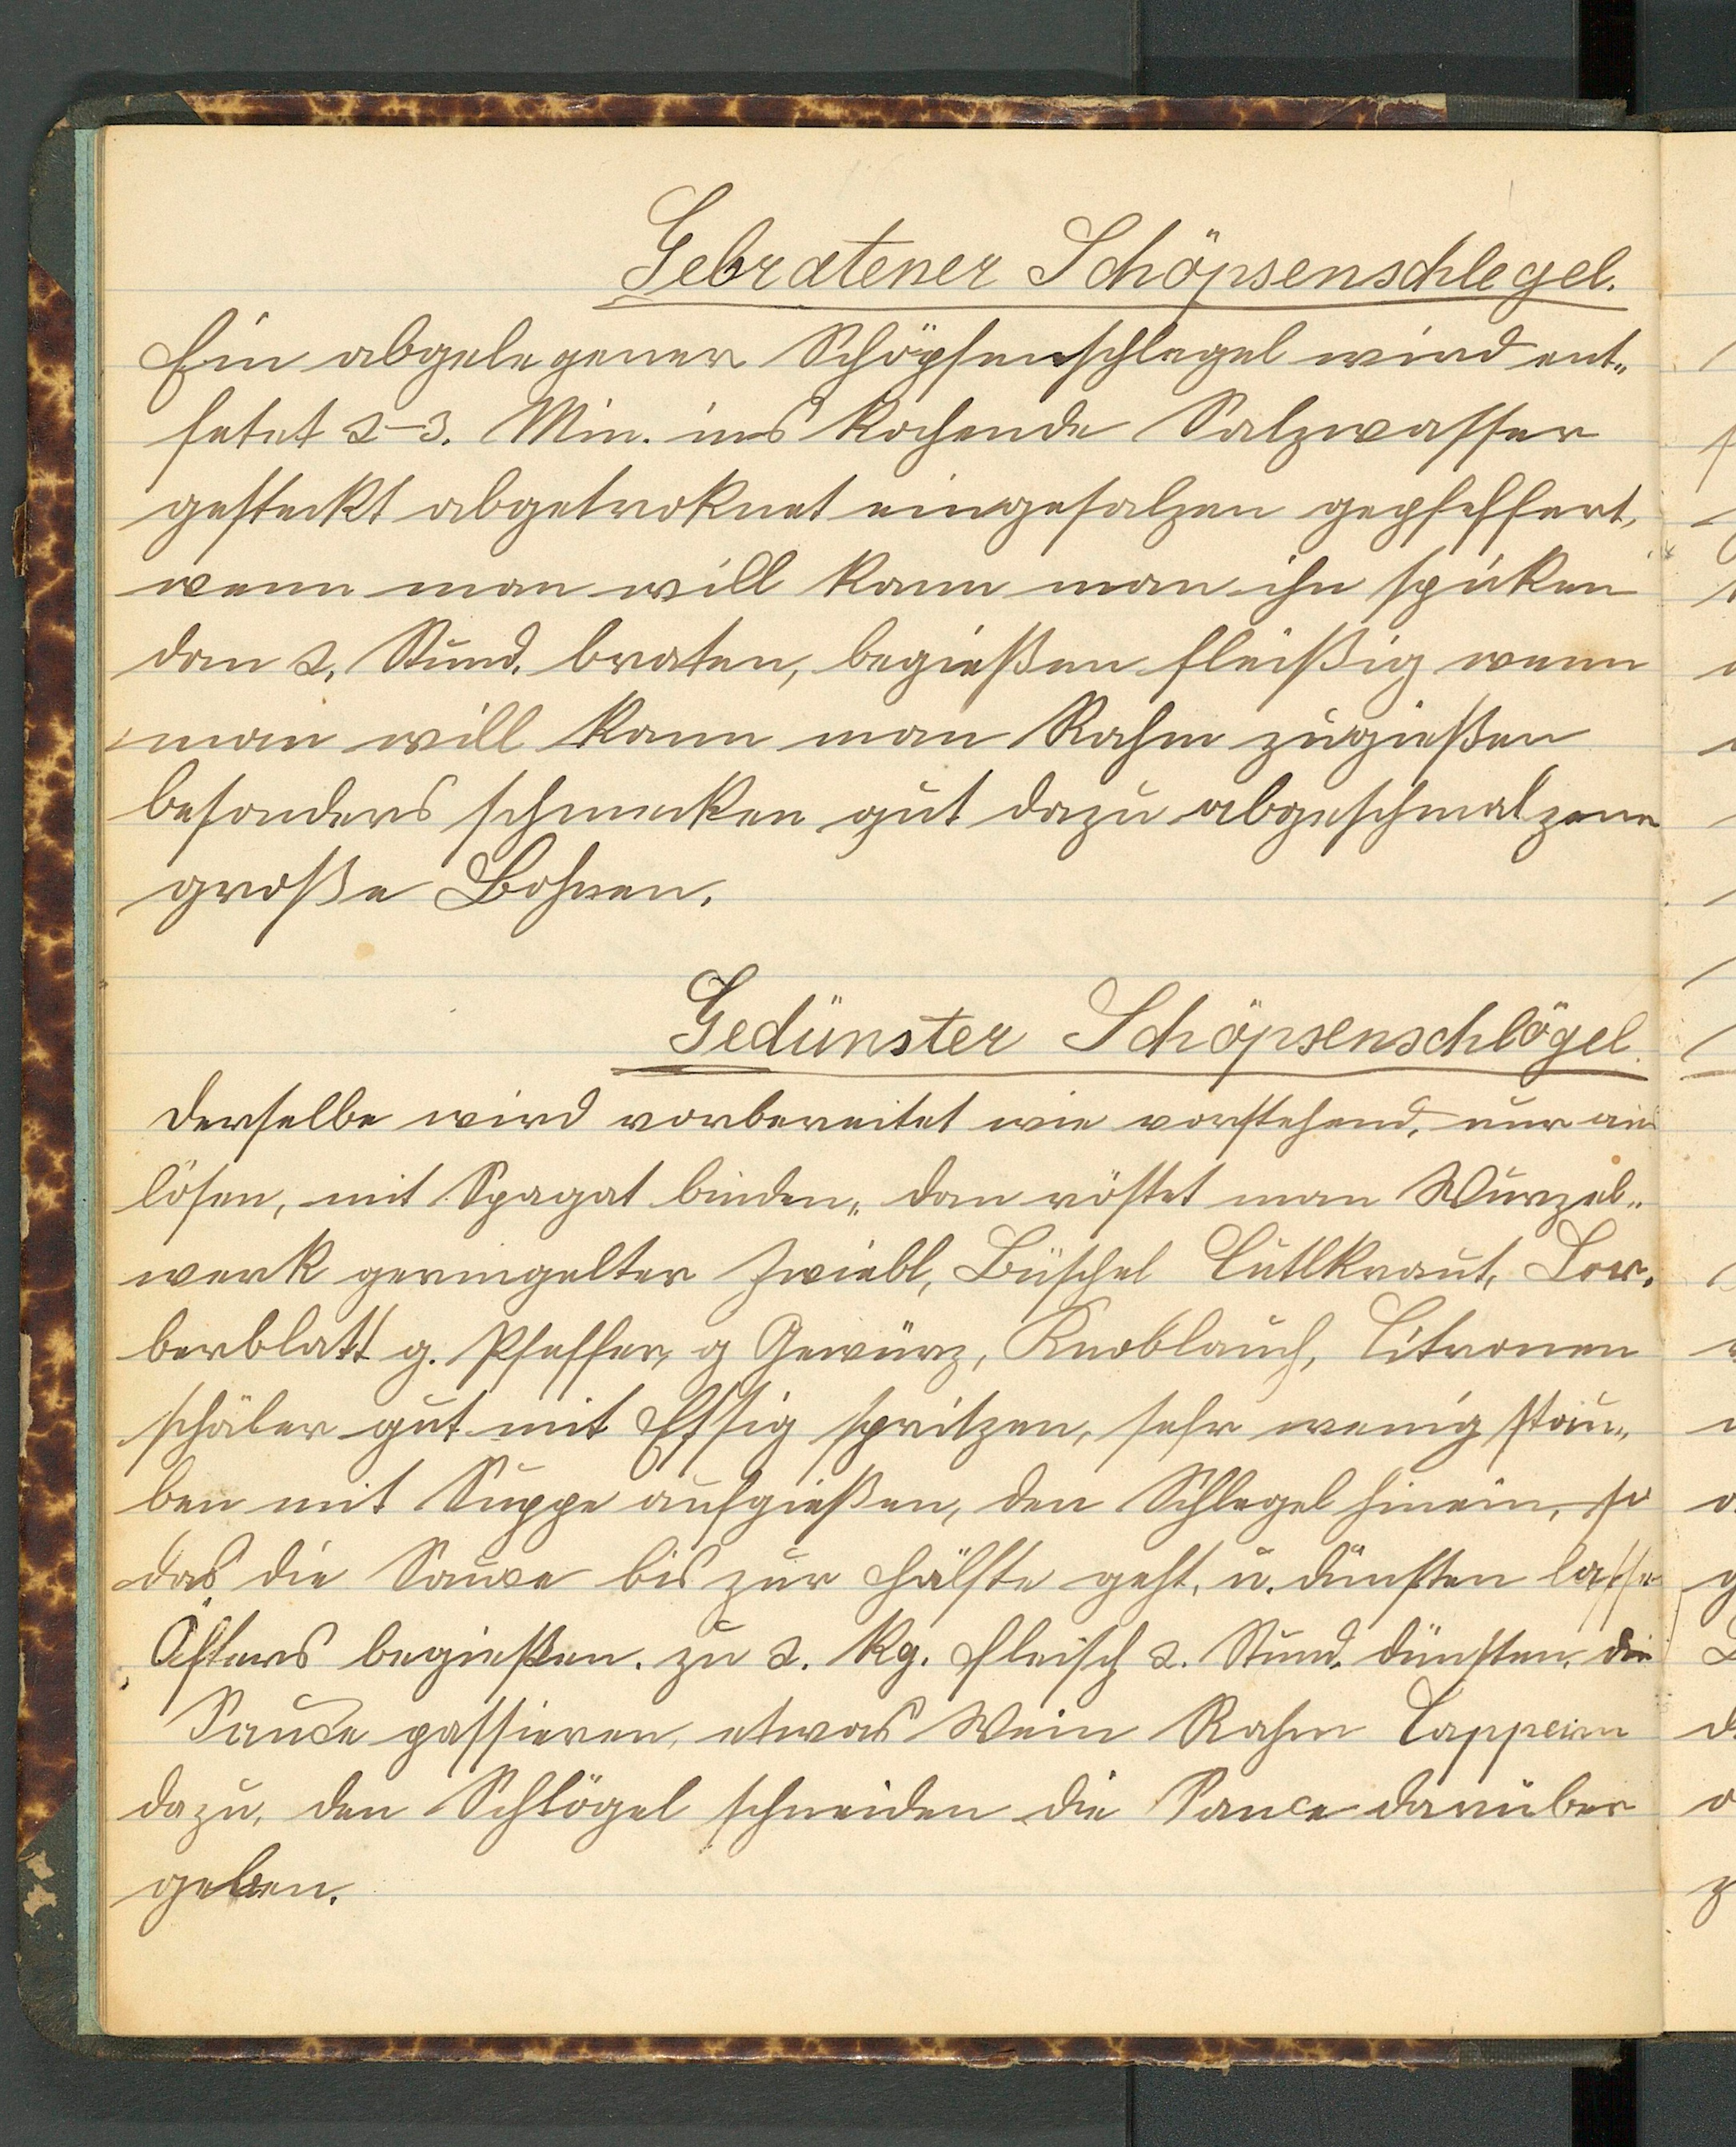 Gebratener Schöpsenschlegel.
Ein abgelegener Schöpsenschlegel wird ent„
fetet 2-3. Min. ins kochende Salzwasser
gestekt abgetroknet eingesalzen gepfeffert,
wenn man will kann man ihn spiken
dan 2. Stund. braten, begießen fleißig wenn
man will kann man Rahm zugießen
besonders schmeken gut dazu abgeschmalzene
große Bohnen.
Gedünster Schöpsenschlögel
derselbe wird vorbereitet wie vorstehend, nur aus
lösen, mit Spagat binden„ dan röstet man Wurzel„
werk geringelter Zwiebl, Büschel Cutlkraut, Lor„
berblatt g. Pfeffer, g Gewürz, Knoblauch, Citronen
schäler gut mit Essig spritzen, sehr wenig stau„
ben mit Suppe aufgießen, den Schlegel hinein, so
das die Sauce bis zur Hälfte geht, u. dünsten lassen
Öfters begießen. zu 2. Kg. Fleisch 2. Stund. dünsten, die
Sauce passieren, etwas Wein Rahm
dazu, den Schlögel schneiden die Sauce darüber
geben.